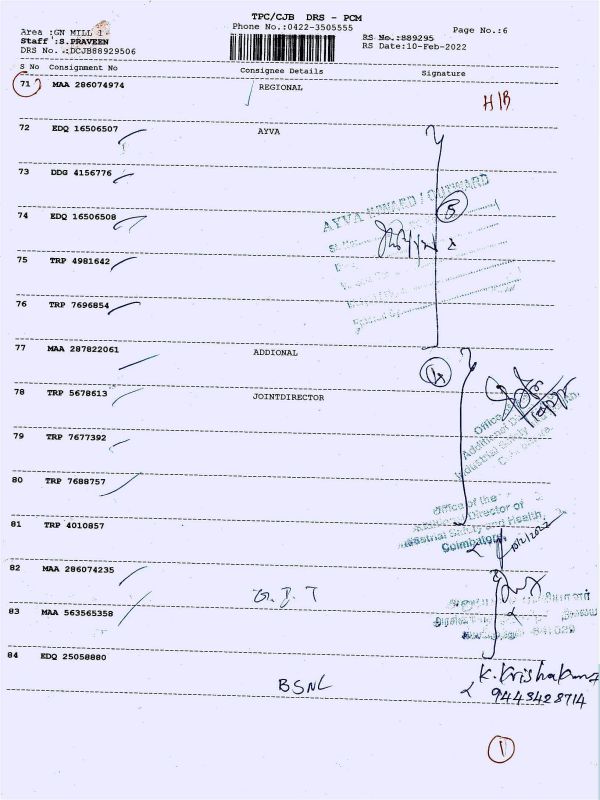 TPC/CJB DRS - PCM
Phone No.:0422-3505555
Page No.:6
Area :GN MILL 1
Staff :S.PRAVEEN
DRS No. :DCJB88929506
RS No.:889295
RS Date:10-Feb-2022
S No Consignment No Consignee Details Signature
71 MAA 286074974 REGIONAL
72 EDQ 16506507 AYVA
73 DDG 4156776
74 EDQ 16506508
AYVA INWARD / OUTWARD
5
75 TRP 4981642
76 TRP 7696854
77 MAA 287822061 ADDIONAL
4
78 TRP 5678613 JOINTDIRECTOR
79 TRP 7677392
80 TRP 7688757
Office of the
Additional Director of
Industrial Safety and Health,
Coimbatore
10/2/2022
81 TRP 4010857
82 MAA 286074235
83 MAA 563565358
641029
84 EDQ 25058880
BSNL
9443428714
1